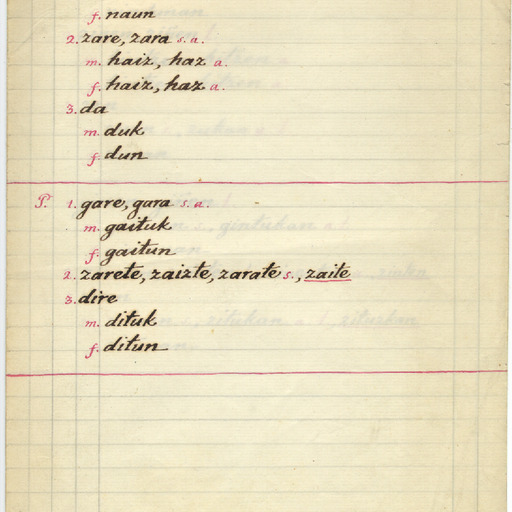 f. naun
2. zare, zara s. a.
m. haiz, haz a.
f. haiz, haz a.
3. da
m. duk
f. dun
P. 1. gare, gara s. a.
m. gaituk
f. gaitun
2. zarete, zaizte, zarate s., zaite
3. dire
m. dituk
f. ditun